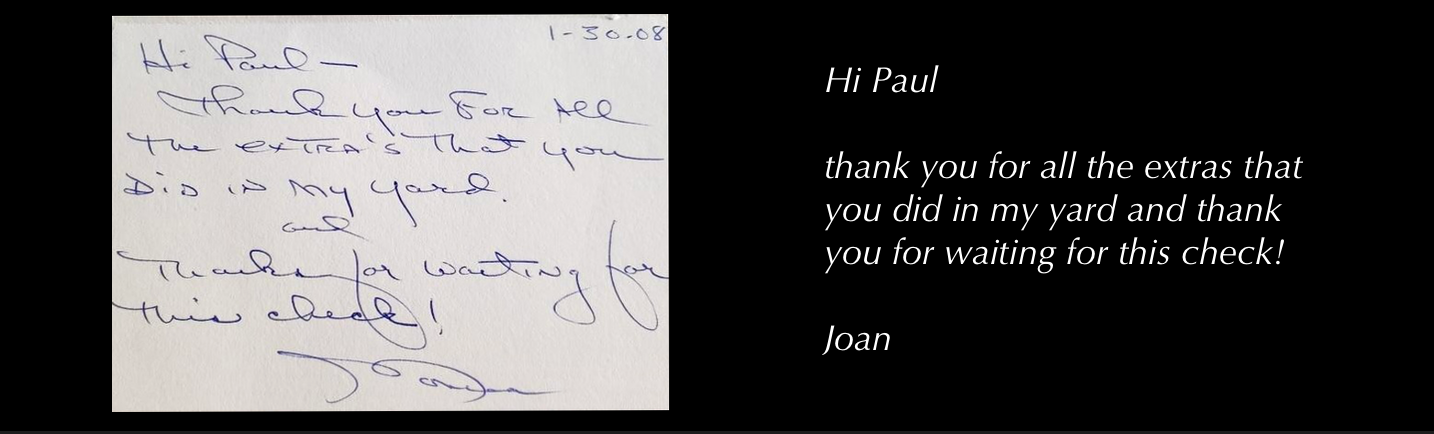 1-30-08
Hi Paul —
Thank you For All
The extra's That you
Did in My yard.
and
Thanks for waiting for
this check!
Joan
Hi Paul
thank you for all the extras that
you did in my yard and thank
you for waiting for this check!
Joan